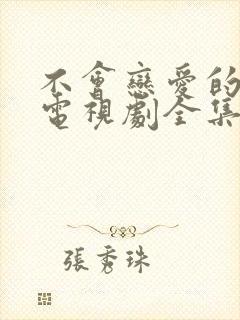 不會戀愛的
電視劇全集
張秀珠